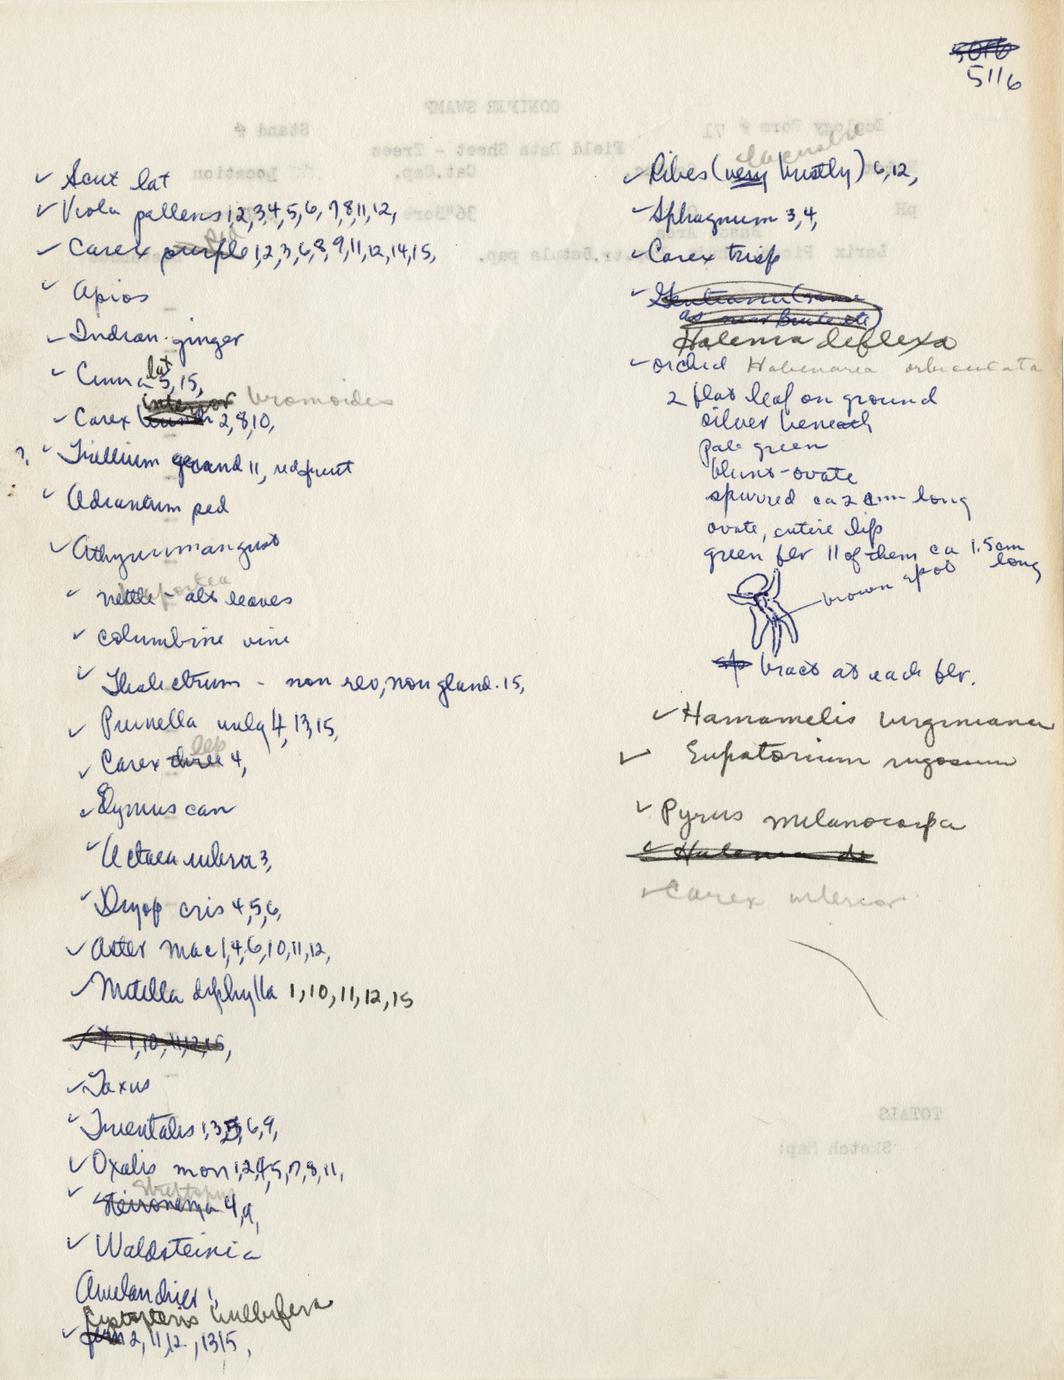 5116
✓ Scut lat
✓ Viola pallens 1,2,3,4,5,6,7,8,11,12,
✓ Carex purple 1,2,3,6,8,9,11,12,14,15,
✓ Apios
✓ Indian ginger
✓ Cinna lat 5,15,
interior bromoides
✓ Carex 2,8,10,
?, ✓ Trillium grand 11, red fruit
✓ Adiantum ped
✓ Athyrium angust
Laportea
✓ nettle - alt leaves
✓ columbine vine
✓ Thalictrum - non rev, non gland. 15,
✓ Prunella vulg 4,13,15,
lep
✓ Carex three 4,
✓ Elymus can
✓ Actaea rubra 3,
✓ Dryop cris 4,5,6,
✓ Aster mac 1,4,6,10,11,12,
✓ Mitella diphylla 1,10,11,12,15
✓ 1,10,11,12,15,
✓ Taxus
✓ Trientalis 1,3,5,6,9,
✓ Oxalis mon 1,2,4,5,7,8,11,
Streptopus
✓ Steironema 4,9,
✓ Waldsteinia
Amelanchier 1,
Cystopteris bulbifera
✓ fern 2,11,12,13,15,
lacustre
✓ Ribes (very bristly) 6,12,
✓ Sphagnum 3,4,
✓ Carex trisp
✓ Gentiana (same
as near Brule etc)
Halenia deflexa
✓ orchid Habenaria orbiculata
2 flat leaf on ground
silver beneath
pale green
blunt-ovate
spurred ca 2 cm long
ovate, entire lip
green flr 11 of them ca 1.5cm
long
brown spot
bract at each flr.
✓ Hamamelis virginiana
✓ Eupatorium rugosum
✓ Pyrus melanocarpa
✓ Halenia de
✓ Carex interior
CONIFER SWAMP
Ecology Form # 71
Stand #
Field Data Sheet - Trees
Location
Cat.Cap.
pH
36"Bore
Basal Area
Larix
Betula pap.
TOTALS
Sketch Map: